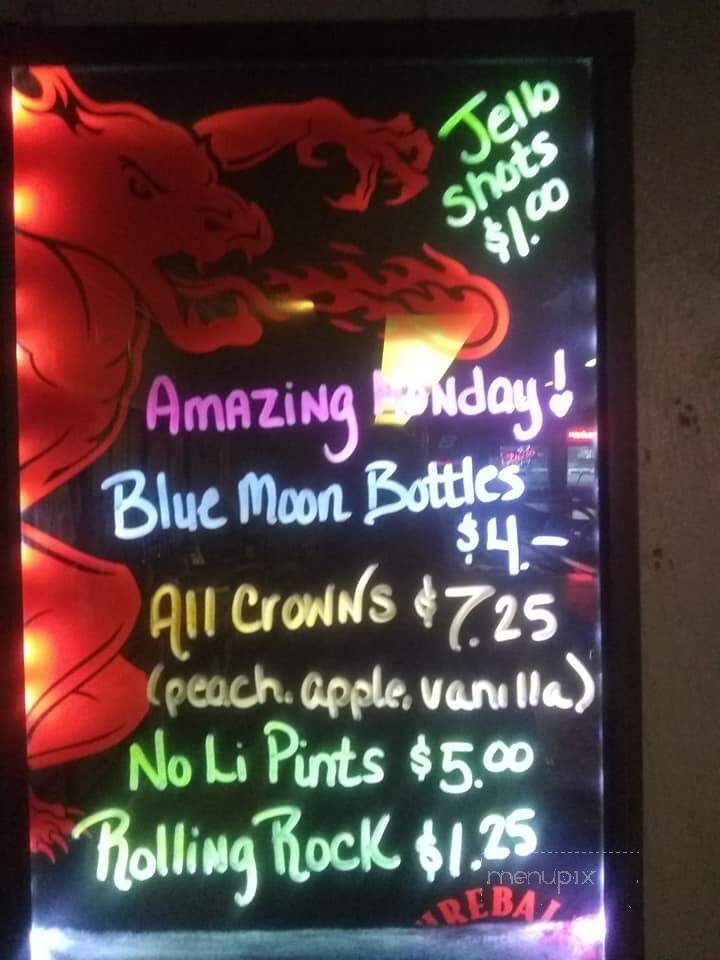 Jello
Shots
$1.00
Amazing Monday!
Blue Moon Bottles
$4.–
All Crowns $7.25
(peach. apple. vanilla)
No Li Pints $5.00
Rolling Rock $1.25
menupix